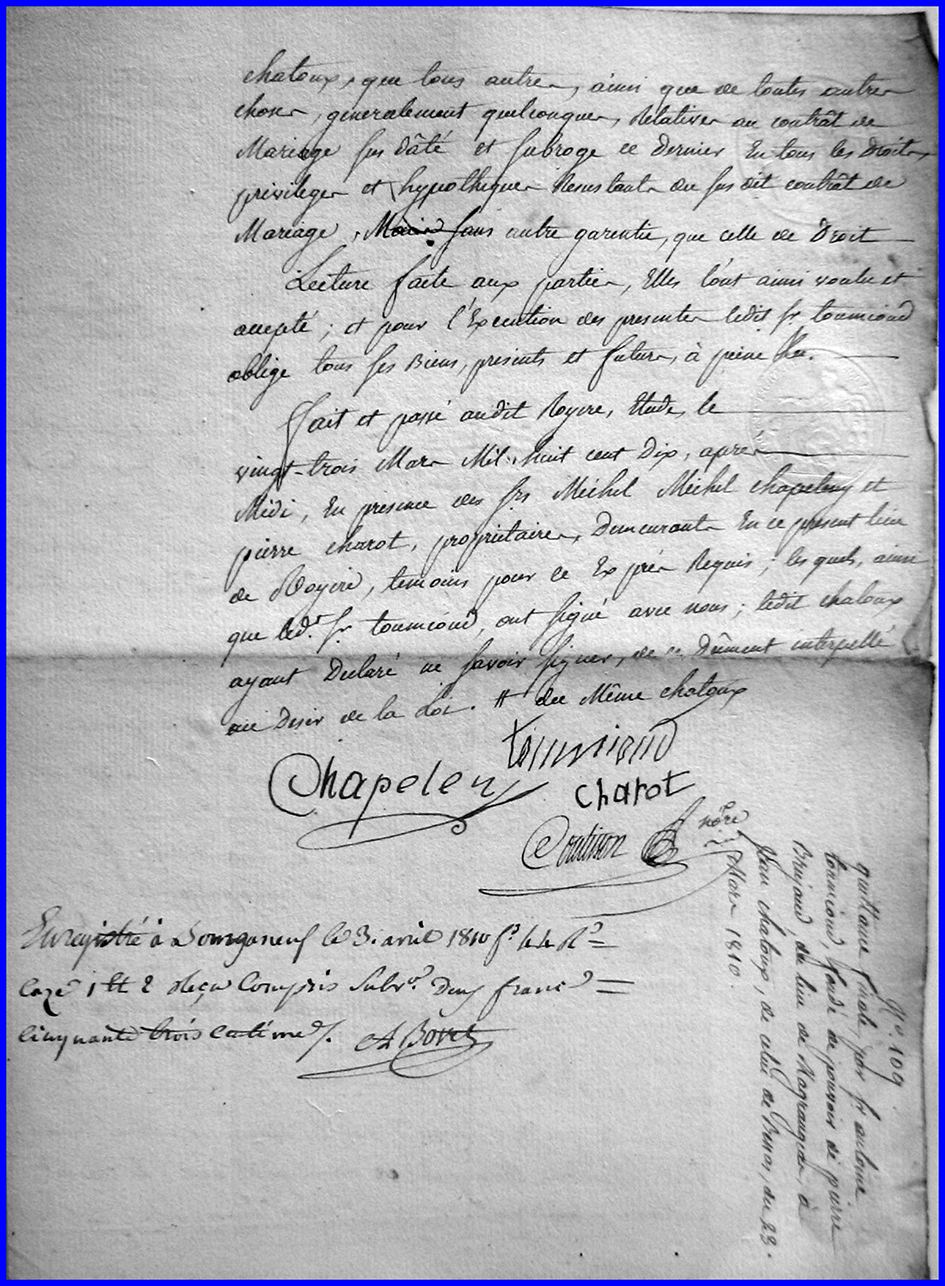 chatoux, que tous autres, ainsi que de toutes autres
choses, généralement quelconques, Relatives au contrât de
Mariage sus dâté et subroge ce Dernier En tous les Droits
privileges et hypotheques Resultants du sus dit contrât de
Mariage, sans autre garentie, que celle de Droit
Lecture faite aux parties, Elles l'ont ainsi voulu et
accepté; et pour l'Execution des presentes ledit sr. toumieoud
oblige tous ses Biens, presents et futurs, à peine &a.
fait et passé audit Royere, Etude, le
vingt-trois Mars Mil-huit cent dix, après
Midi, En presence des srs Michel Michel chapeleny et
pierre charot, propriétaires, Demeurants En ce present lieu
de Royere, temoins pour ce Exprès Requis; les quels, ainsi
que led.t sr. toumieoud, ont signé avec nous; ledit chatoux
ayant Declaré ne savoir signer, de ce Dûment interpellé
au Desir de la Loi. # du Même chatoux
toumieoud
Chapeleny
charot
Coutisson nore
Enregistré à Bourganeuf le 3. avril 1810 fo. 44 Ro
Caze 1 et 2 Reçu Compris Subvon. Deux francs
Cinquante trois Centimes.
A Bovet
No. 109
quittance finale par sr. antoine
toumieoud, fondé de pouvoir de pierre
Brujaud, du lieu de Magranges, à
Jean chatoux, de celui de Buses, du 23.
Mars 1810.